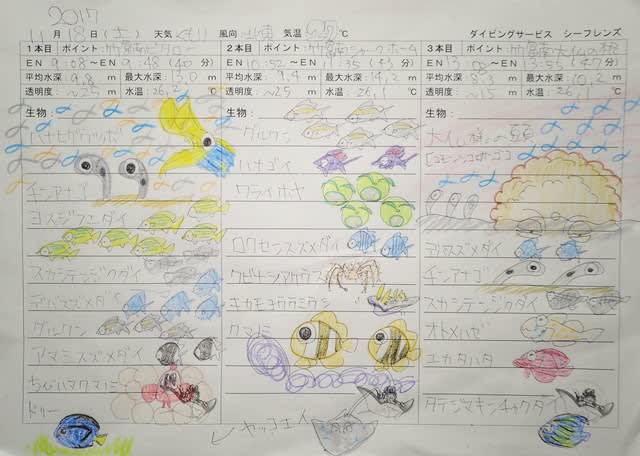 2017
11月18日(土) 天気 くもり 風向 北東 気温 ℃ ダイビングサービス シーフレンズ
1本目 ポイント:竹富南ビタロー
EN 9:08~EN 9:48(40分)
平均水深 9.8m 最大水深 13.0m
透明度 ~25m 水温 26.2℃
生物:
ハナヒゲウツボ
チンアナゴ
ヨスジフエダイ
スカシテンジクダイ
デバスズメダイ
グルクン
アマミスズメダイ
ちびハマクマノミ
ドリー
2本目 ポイント:竹富南シャークホーム
EN 10:52~EN 11:35(43分)
平均水深 9.4m 最大水深 14.2m
透明度 ~25m 水温 26.1℃
生物:
グルクン
ハナゴイ
ワライボヤ
ロクセンスズメダイ
キカモヨウウミウシ
クマノミ
ヤッコエイ
3本目 ポイント:竹富南大仏の根
EN 13:08~EN 13:55(47分)
平均水深 8.3m 最大水深 10.2m
透明度 ~15m 水温 26.1℃
生物:
大仏様の頭
[コモンシコロサンゴ]
デバスズメダイ
チンアナゴ
スカシテンジクダイ
オトメハゼ
ユカタハタ
タテジマキンチャクダイ